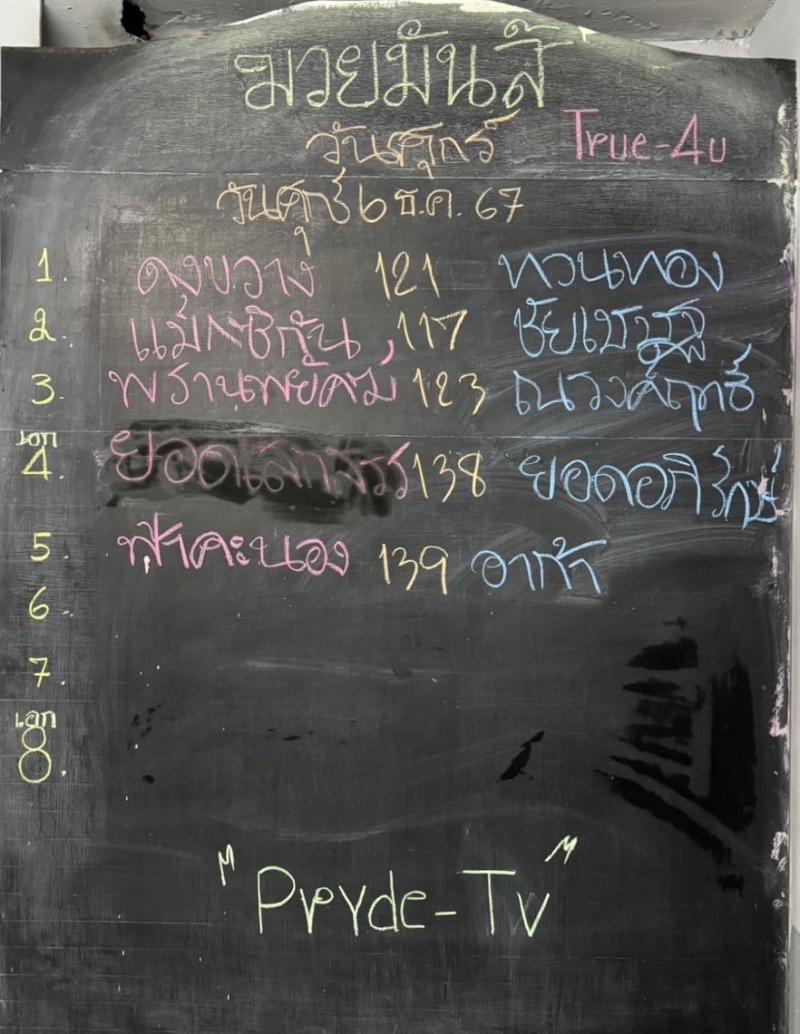 มวยมันส์
วันศุกร์ True-4u
วันศุกร์ 6 ธ.ค. 67
1. ดุงขวาง 121 ทวนทอง
2. แม็กซิกัน 117 ชัยเชษฐ
3. พรานพยัคฆ์ 123 ณรงค์ฤทธิ์
เอก
4. ยอดเลกเพชร 138 ยอดอภิรักษ์
5. ฟ้าคะนอง 139 อาก้า
6.
7.
เอก
8.
"Pryde-Tv"